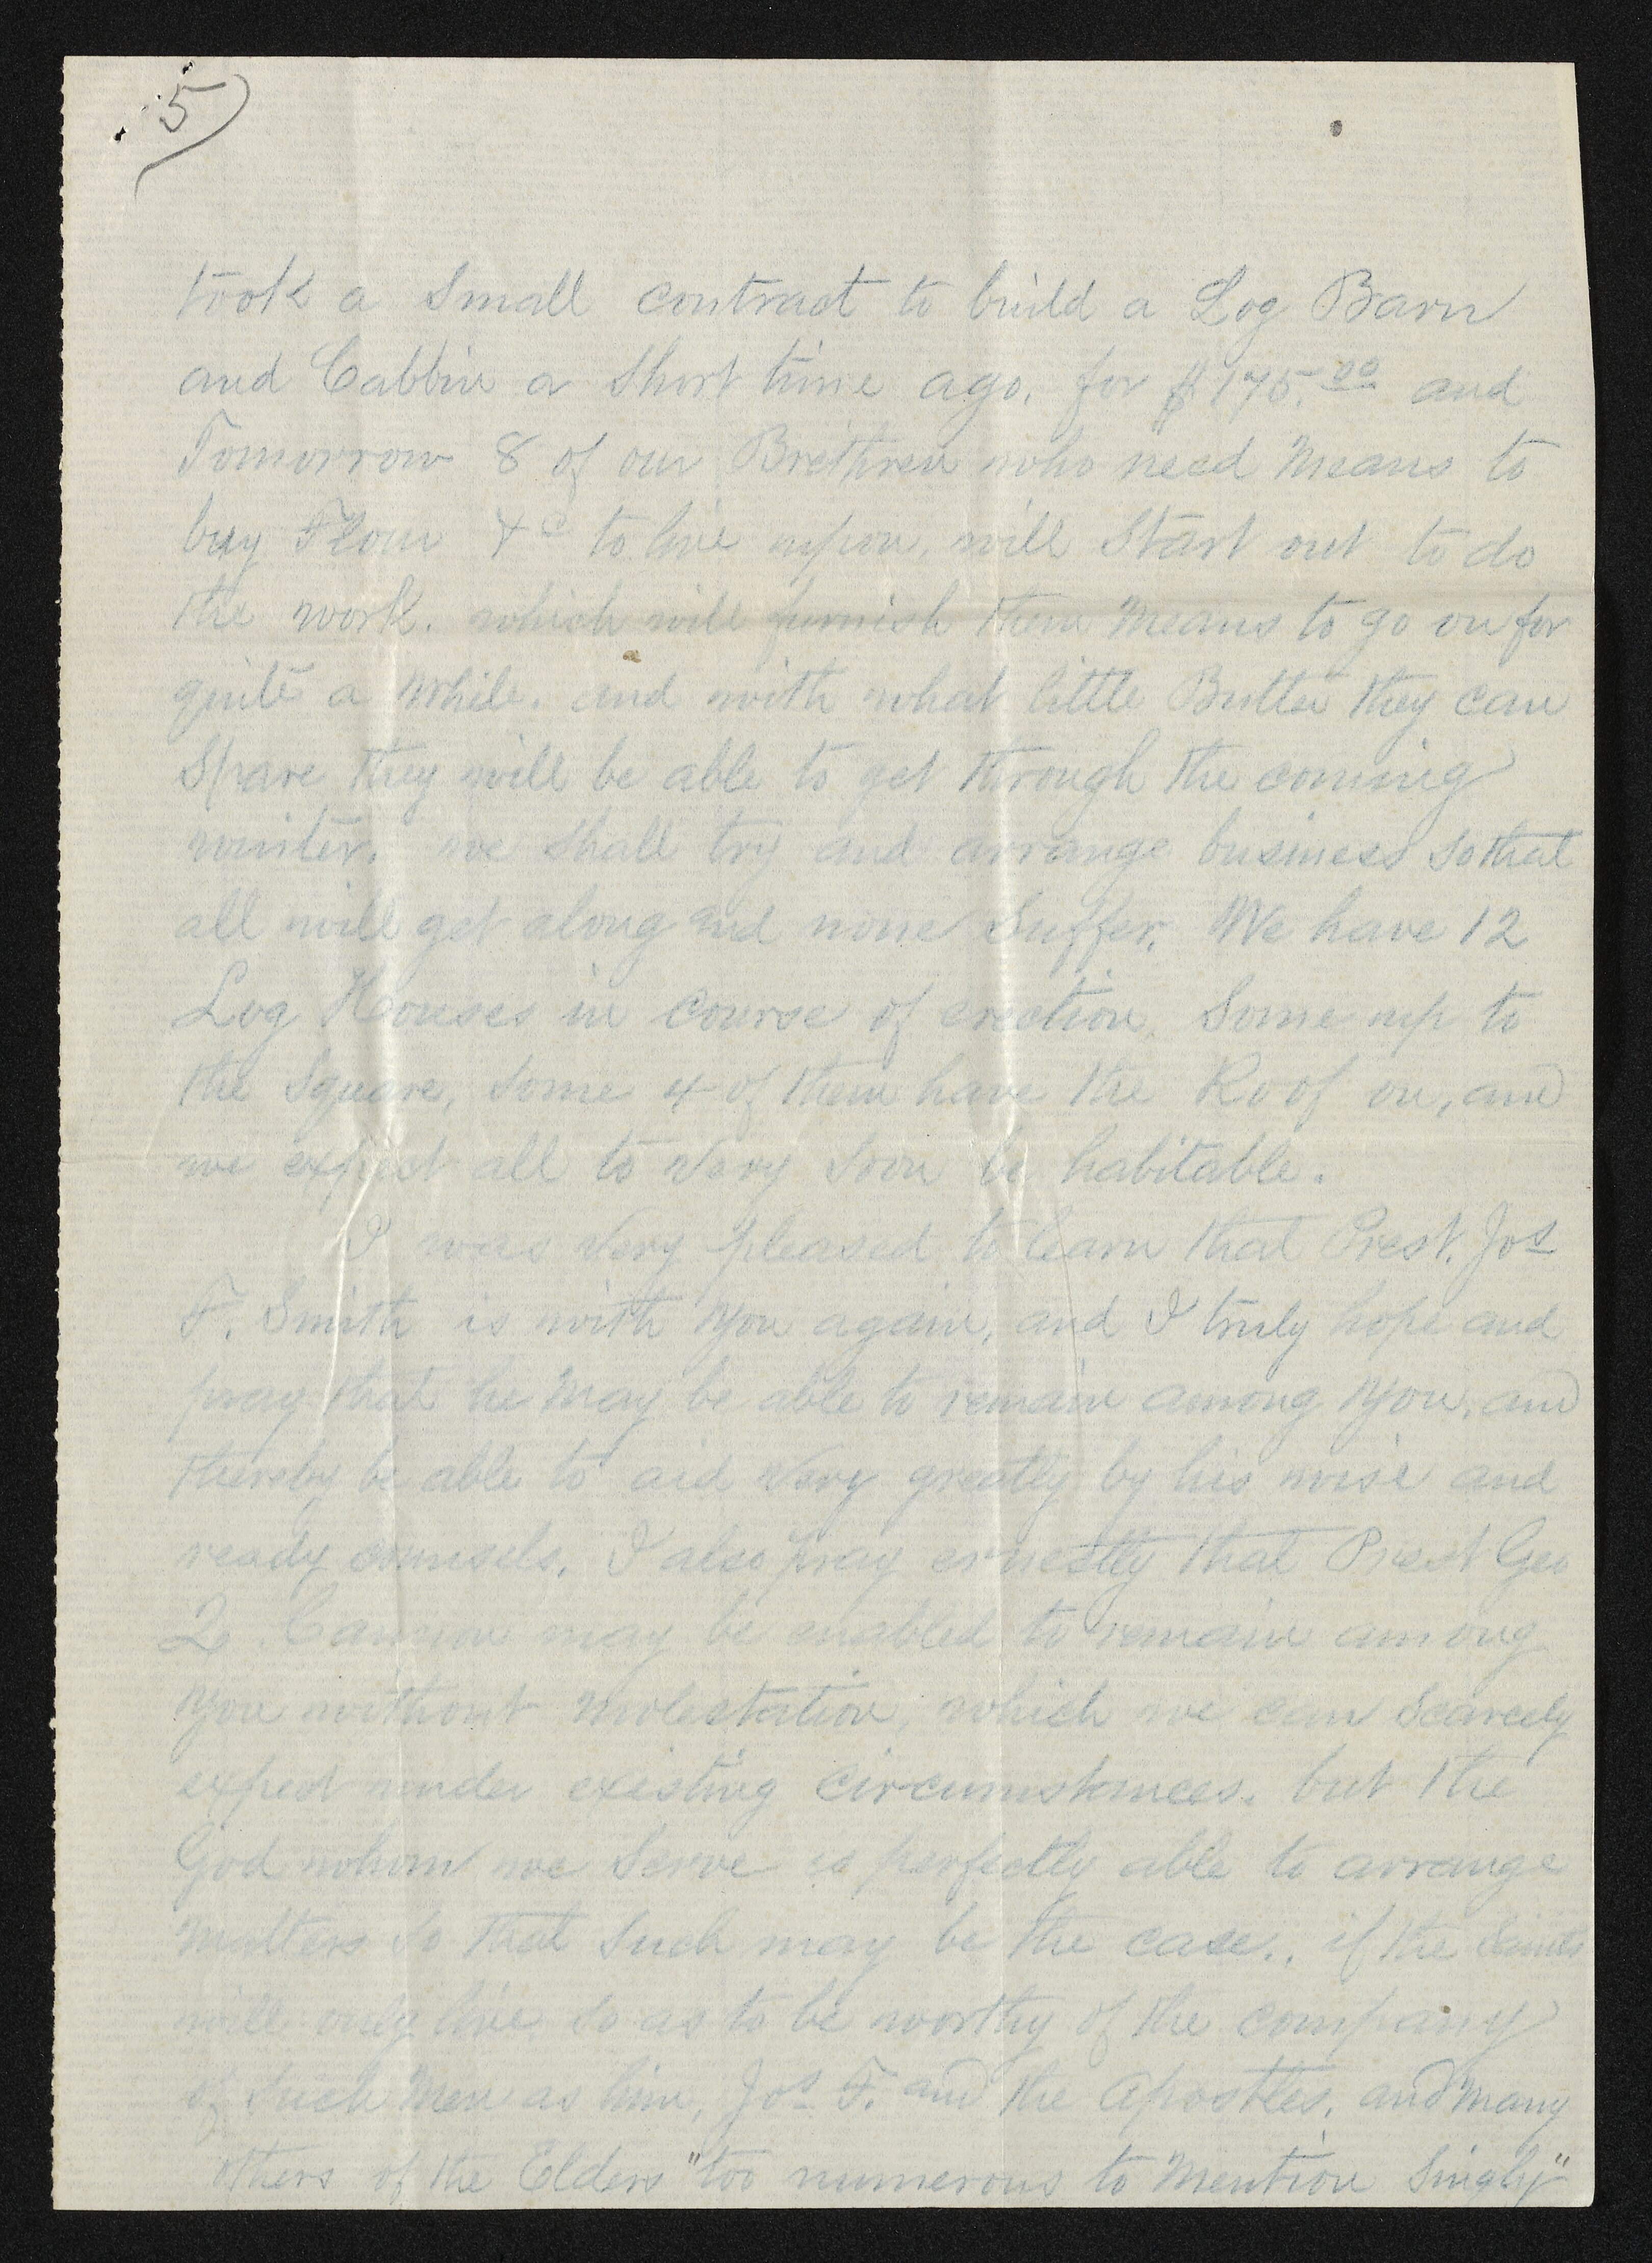 5)
took a Small contract to build a Log Barn
and Cabbin a Short time ago, for $175.00 and
Tomorrow 8 of our Brethren who need Means to
buy Flour &c to live upon, will Start out to do
the work. which will furnish them Means to go on for
quite a While. and with what little Butter they can
Spare they will be able to get through the coming
winter. we shall try and arrange business so that
all will get along and none Suffer. We have 12
Log Houses in course of erection, Some up to
the Square, some 4 of them have the Roof on, and
we expect all to very soon be habitable.
I was very pleased to learn that Prest. Jos
F. Smith is with you again, and I truly hope and
pray that he May be able to remain among you, and
thereby be able to aid very greatly by his wise and
ready counsels. I also pray ernestly that Prest Geo
Q. Cannon may be enabled to remain among
you without molestation, which we can Scarcely
expect under existing circumstances. but the
God whom we Serve is perfectly able to arrange
Matters so that Such may be the case., if the Saints
will only live so as to be worthy of the company
of such Men as him, Jos F. and the Apostles, and many
others of the Elders "too numerous to Mention Singly"